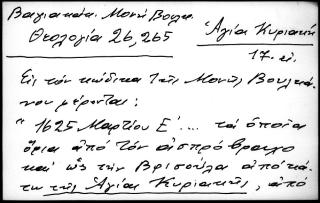 Βαγιακάκ. Μονή Βουλκ.
Θεολογία 26, 265
Ἁγία Κυριακή
17. αἰ.
Εἰς τόν κώδικα τῆς Μονῆς Βουλκά-
νου φέρονται:
"1625 Μαρτίου Ε' ... τά ὁποῖα
ὅρια ἀπό τόν ἄσπρο βράχο
καί ὡς τήν Βρισούλα ἀπό κά-
τω τῆς Ἁγίας Κυριακῆς, ἀπό